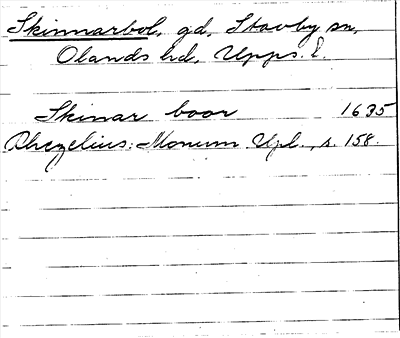 Skinnarbol, gd, Stavby sn,
Olands hd, Upps. l.
Skinar boor 1635
Rhezelius: Monum Upl., s. 158.